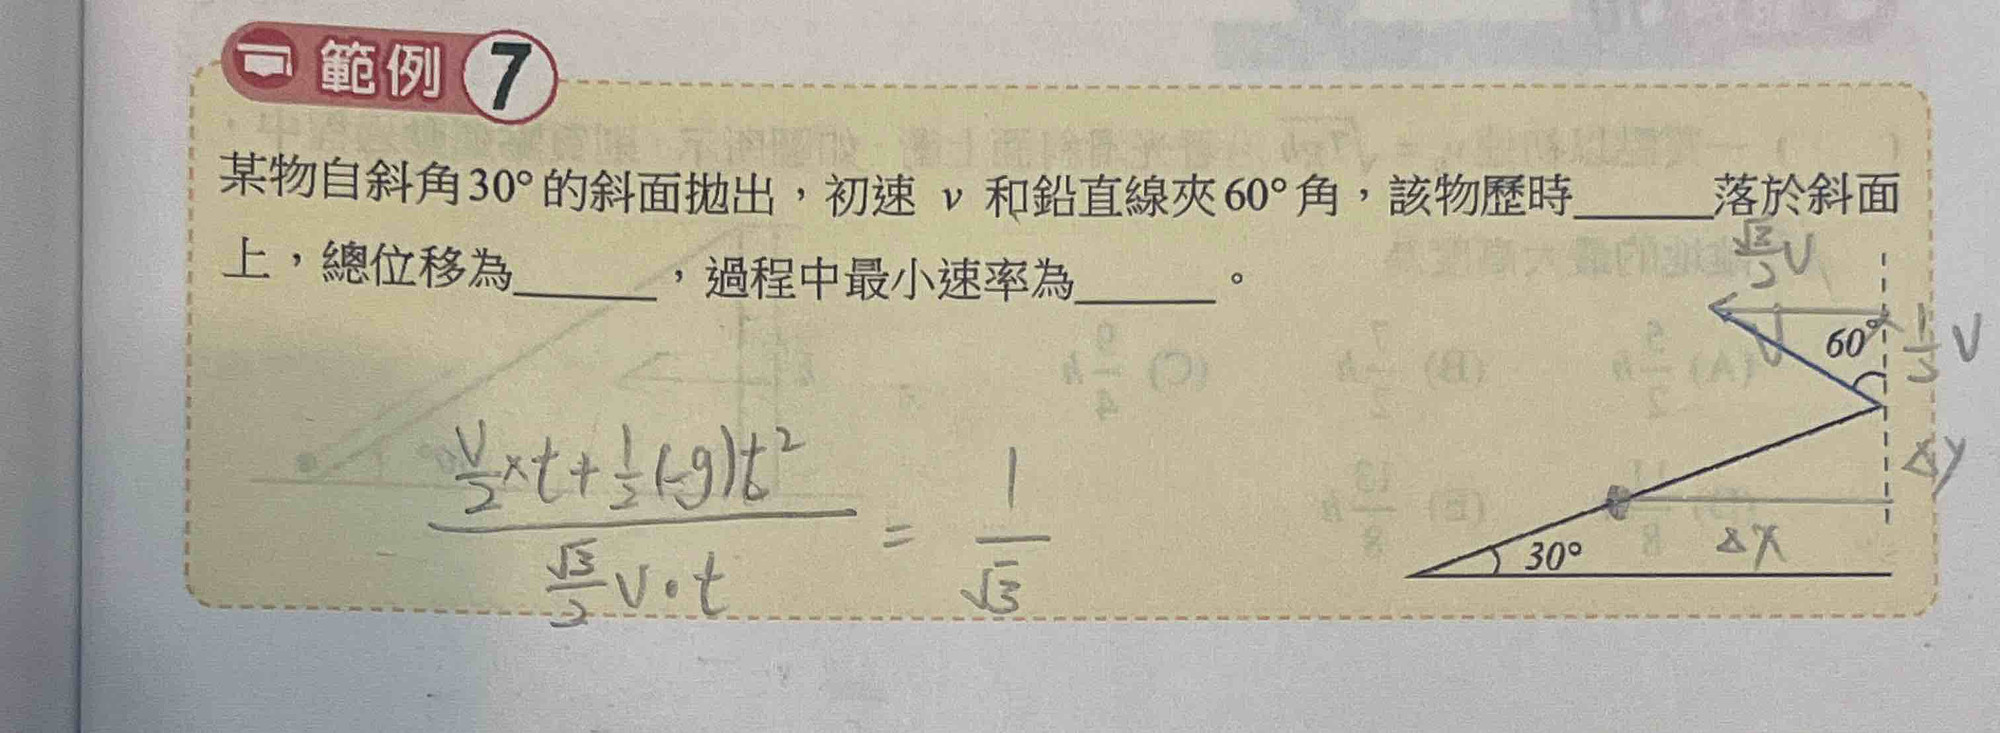 範例 7
某物自斜角30°的斜面拋出，初速 v 和鉛直線夾60°角，該物歷時______落於斜面
上，總位移為______，過程中最小速率為______。
√3/2 V
60°
V
1/2 V
Δy
30°
Δx
(V/2 × t + 1/2 (-g)t²) / (√3/2 V · t) = 1/√3